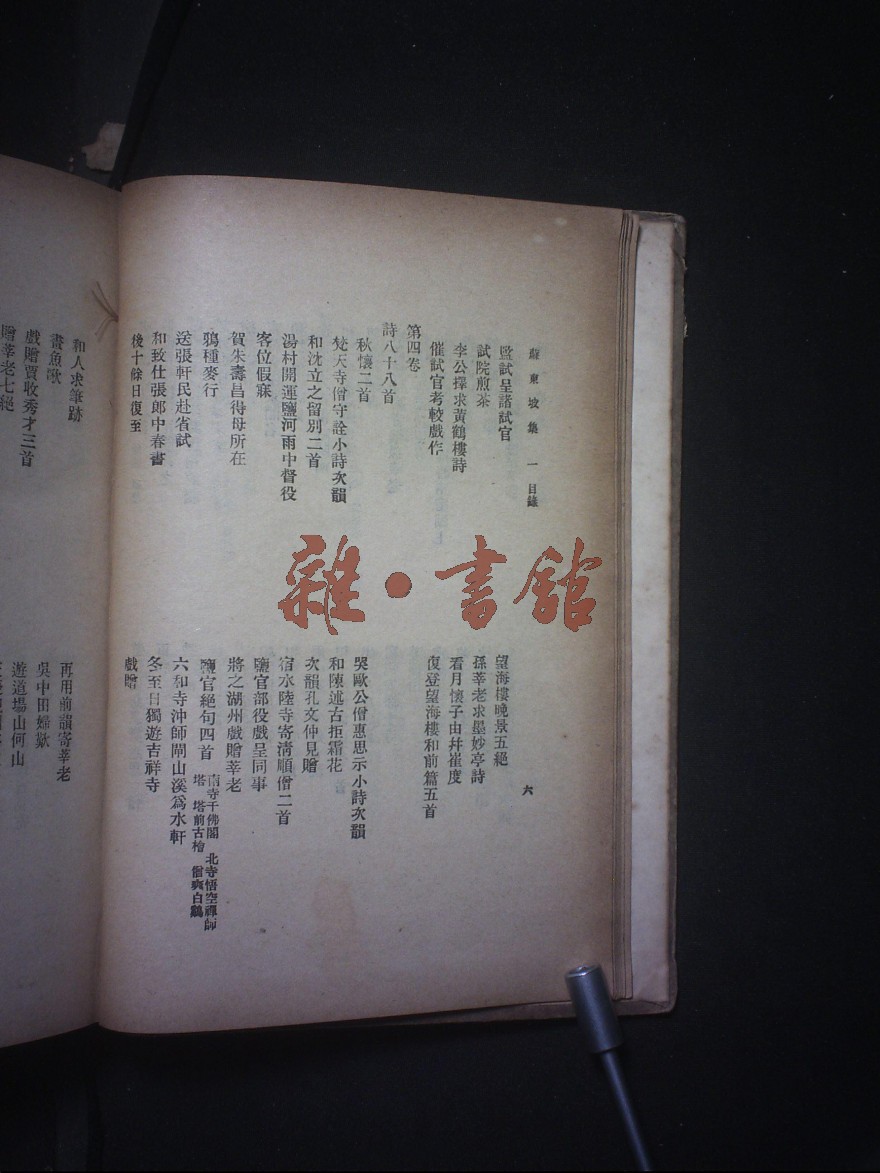 蘇東坡集 一 目錄
六
監試呈諸試官
望海樓晚景五絕
試院煎茶
孫莘老求墨妙亭詩
李公擇求黃鶴樓詩
看月懷子由幷崔度
催試官考較戲作
復登望海樓和前篇五首
第四卷
詩八十八首
秋懷二首
哭歐公僧惠思示小詩次韻
梵天寺僧守詮小詩次韻
和陳述古拒霜花
和沈立之留別二首
次韻孔文仲見贈
湯村開運鹽河雨中督役
宿水陸寺寄淸順僧二首
客位假寐
鹽官部役戲呈同事
賀朱壽昌得母所在
將之湖州戲贈莘老
鴉種麥行
鹽官絕句四首 南寺千佛閣 北寺悟空禪師塔 塔前古檜 僧爽白鷄
送張軒民赴省試
六和寺沖師閘山溪爲水軒
和致仕張郎中春晝
冬至日獨遊吉祥寺
後十餘日復至
戲贈
和人求筆跡
再用前韻寄莘老
畫魚歌
吳中田婦歎
戲贈賈收秀才三首
遊道場山何山
贈莘老七絕
雜·書館